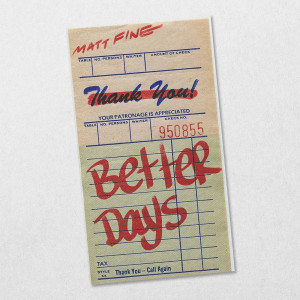 MATT FINE
TABLE NO. PERSONS WAITER AMOUNT OF CHECK
Thank You!
YOUR PATRONAGE IS APPRECIATED
TABLE NO. PERSONS WAITER CHECK NO.
950855
Better
Days
TAX
Thank You - Call Again